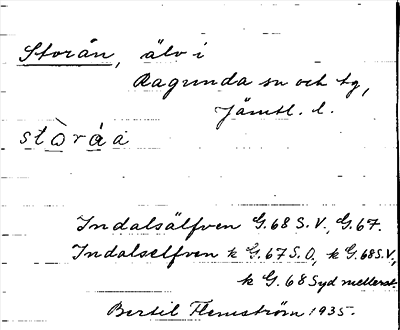 Storån, älv i
Ragunda sn och tg,
Jämtl. l.
stòráa
Indalsälfven G.68 S.V., G.67.
Indalselfven k G.67 S.O, k G.68 S.V.,
k G.68 Syd mellerst.
Bertil Flemström 1935.